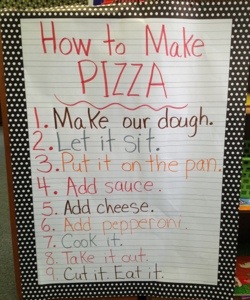 How to Make
PIZZA
1. Make our dough.
2. Let it sit.
3. Put it on the pan.
4. Add sauce.
5. Add cheese.
6. Add pepperoni.
7. Cook it.
8. Take it out.
9. Cut it. Eat it.